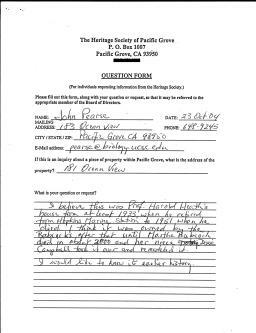 The Heritage Society of Pacific Grove
P. O. Box 1007
Pacific Grove, CA 93950
QUESTION FORM
(For individuals requesting information from the Heritage Society.)
Please fill out this form, along with your question or request, so that it may be referred to the
appropriate member of the Board of Directors.
NAME: John Pearse DATE: 23 Oct 04
MAILING
ADDRESS: 183 Ocean View PHONE: 648-9245
CITY / STATE / ZIP Pacific Grove CA 93950
E-Mail address pearse@biology.ucsc.edu
If this is an inquiry about a piece of property within Pacific Grove, what is the address of the
property? 181 Ocean View
What is your question or request?
I believe this was Prof Harold Heath's
house from at least 1933 when he retired
from Hopkins Marine Station to 1951 when he
died. I think it was owned by the
Babcocks after that until Martha Babcock
died in about 2000 and her niece
Campbell took it over and remodeled it.
I would like to know its earlier history.